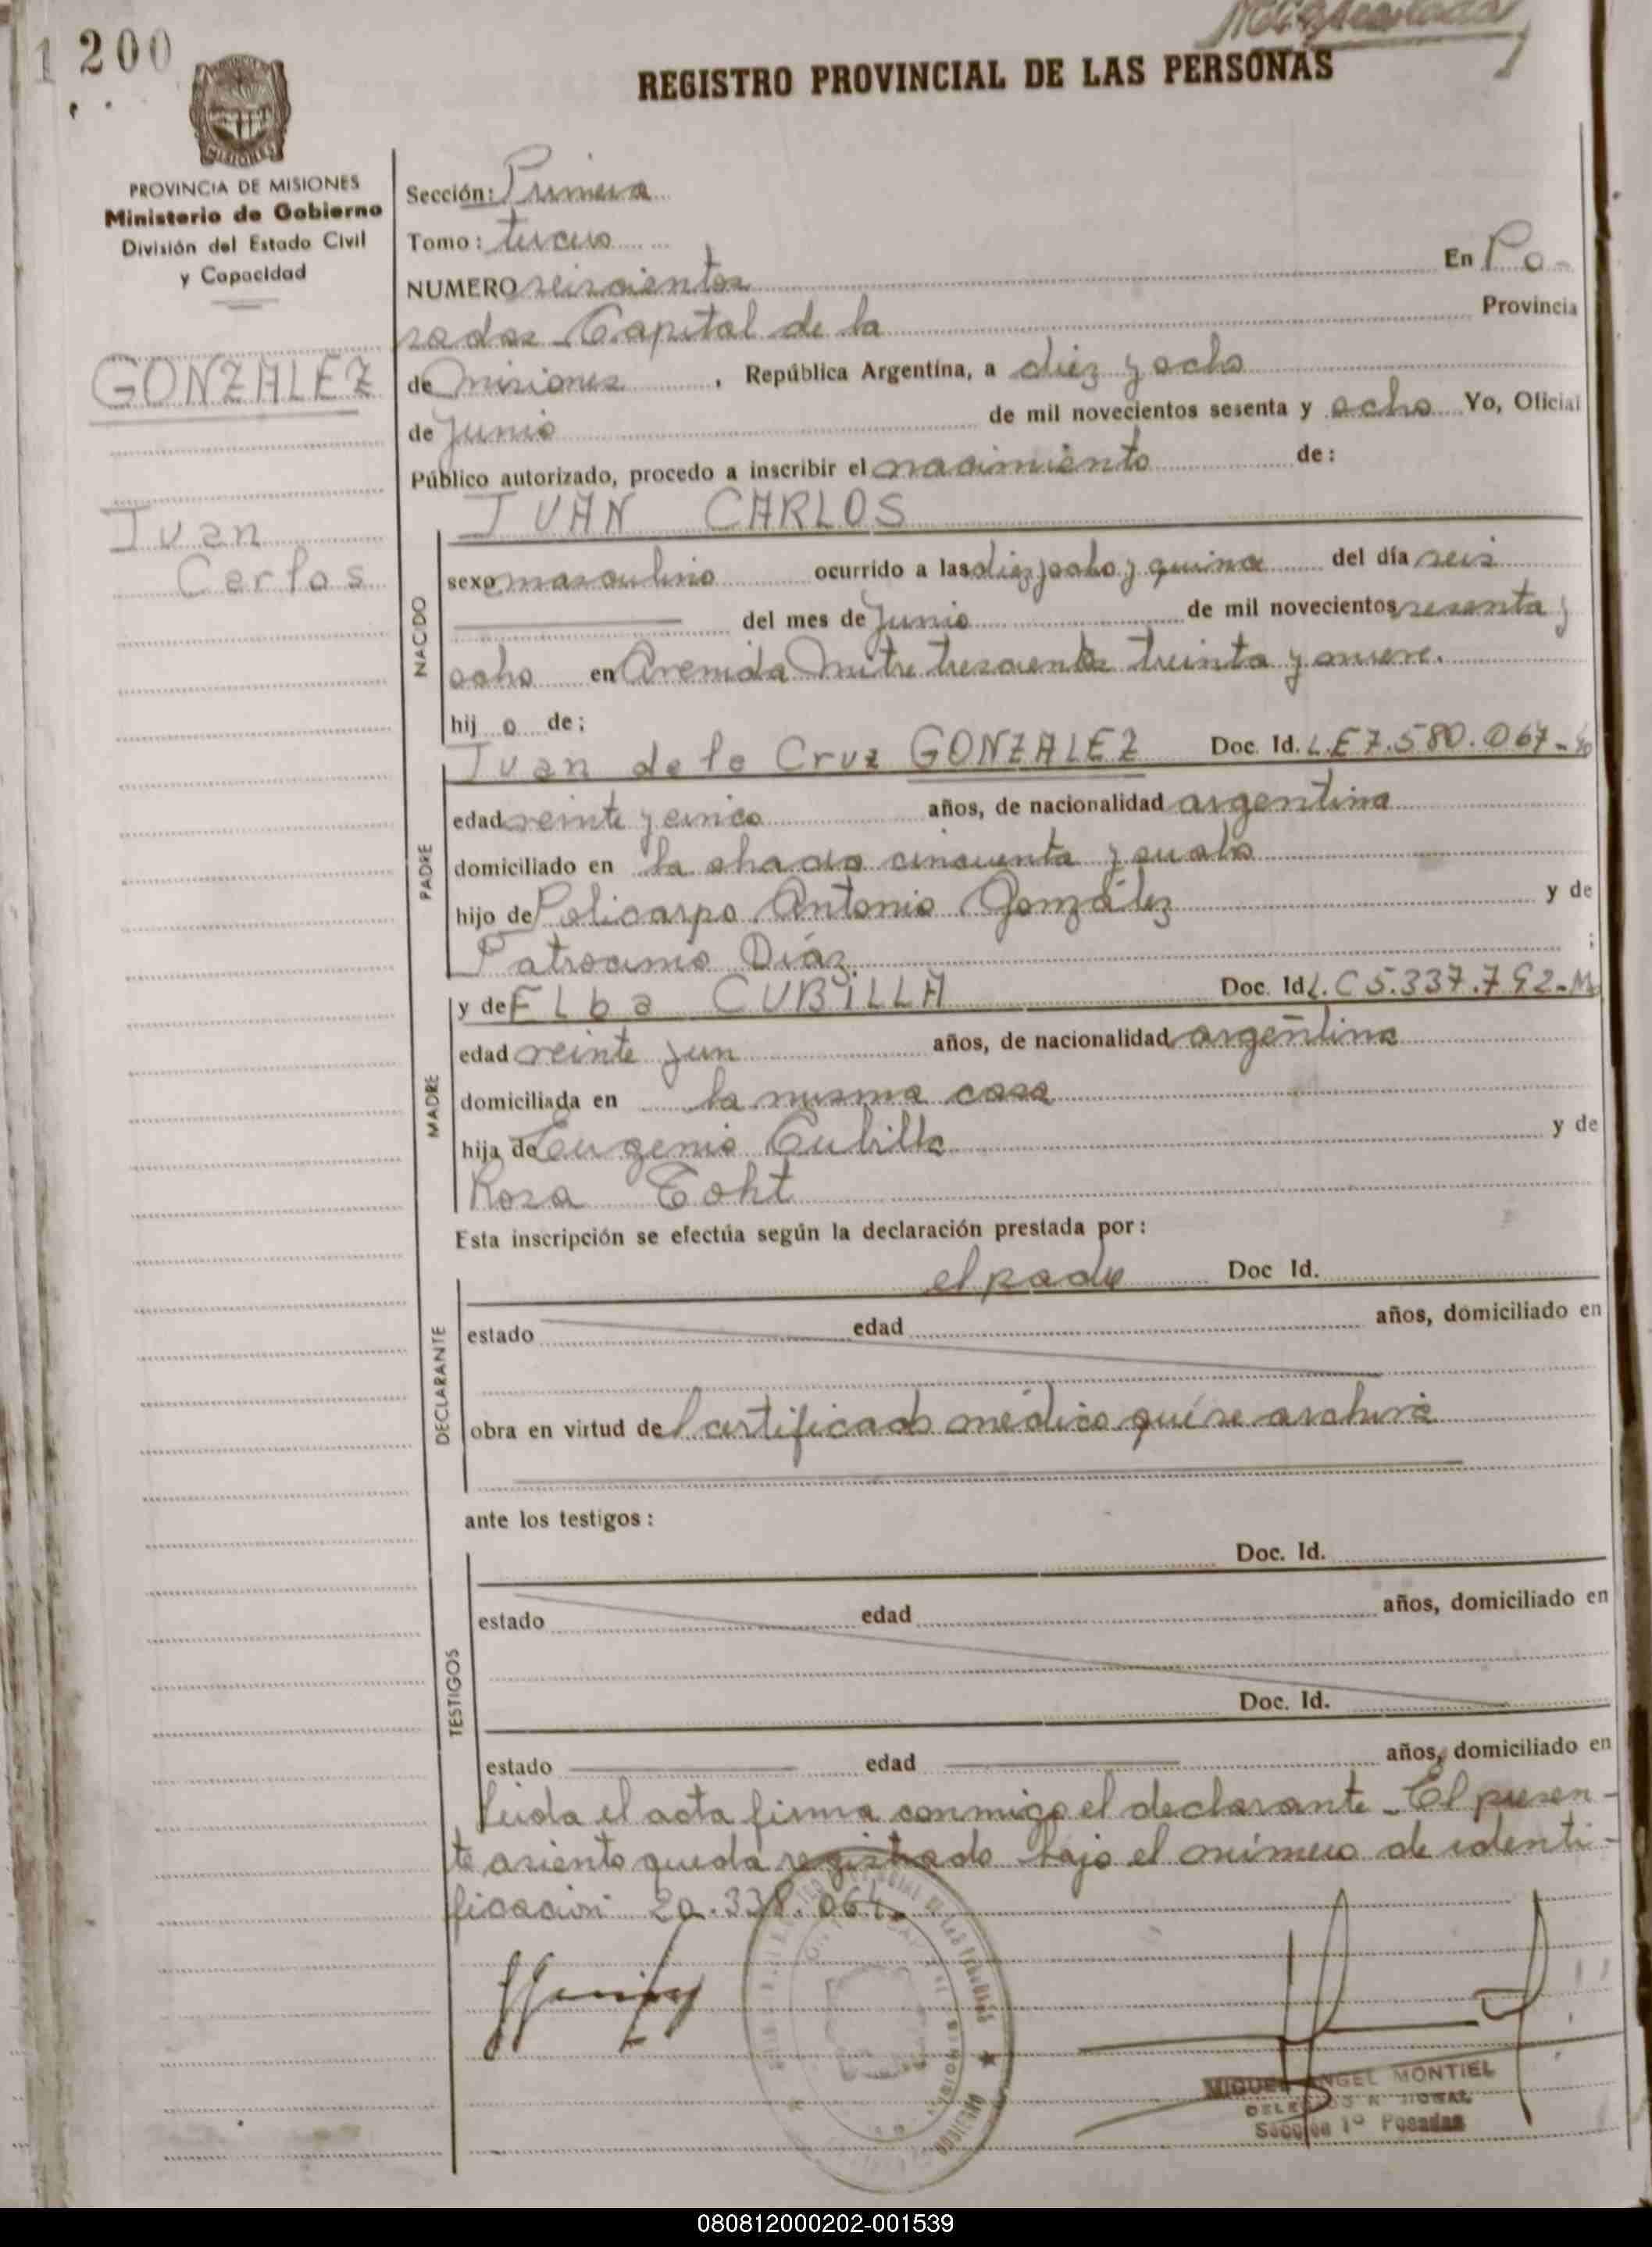 1 200
REGISTRO PROVINCIAL DE LAS PERSONAS
MISIONES
PROVINCIA DE MISIONES
Ministerio de Gobierno
División del Estado Civil
y Capacidad
GONZALEZ
Ivan
Carlos
Sección: Primera
Tomo: tercero
NUMERO seiscientos En Po-
sadas Capital de la Provincia
de Misiones, República Argentina, a diez y ocho
de Junio de mil novecientos sesenta y ocho Yo, Oficial
Público autorizado, procedo a inscribir el nacimiento de:
IVAN CARLOS
NACIDO
sexo masculino ocurrido a las diez y ocho y quince del día seis
del mes de Junio de mil novecientos sesenta y
ocho en Avenida Mitre trescientos treinta y nueve.
hij o de:
PADRE
Juan de la Cruz GONZALEZ Doc. Id. L.E 7.580.067-
edad veinte y cinco años, de nacionalidad argentina
domiciliado en la chacra cincuenta y cuatro
hijo de Policarpo Antonio González y de
Patrocinio Díaz ;
MADRE
y de Elba CUBILLA Doc. Id L.C 5.337.792-M
edad veinte y un años, de nacionalidad argentina
domiciliada en la misma casa
hija de Eugenio Cubilla y de
Rosa
Esta inscripción se efectúa según la declaración prestada por:
DECLARANTE
el padre Doc Id.
estado edad años, domiciliado en
obra en virtud del certificado médico que se archiva
ante los testigos:
TESTIGOS
Doc. Id.
estado edad años, domiciliado en
Doc. Id.
estado edad años, domiciliado en
Leida el acta firma conmigo el declarante - El presen-
te asiento queda registrado bajo el número de identi-
ficación 20.338.064.
MIGUEL ANGEL MONTIEL
Sección 1º Posadas
080812000202-001539